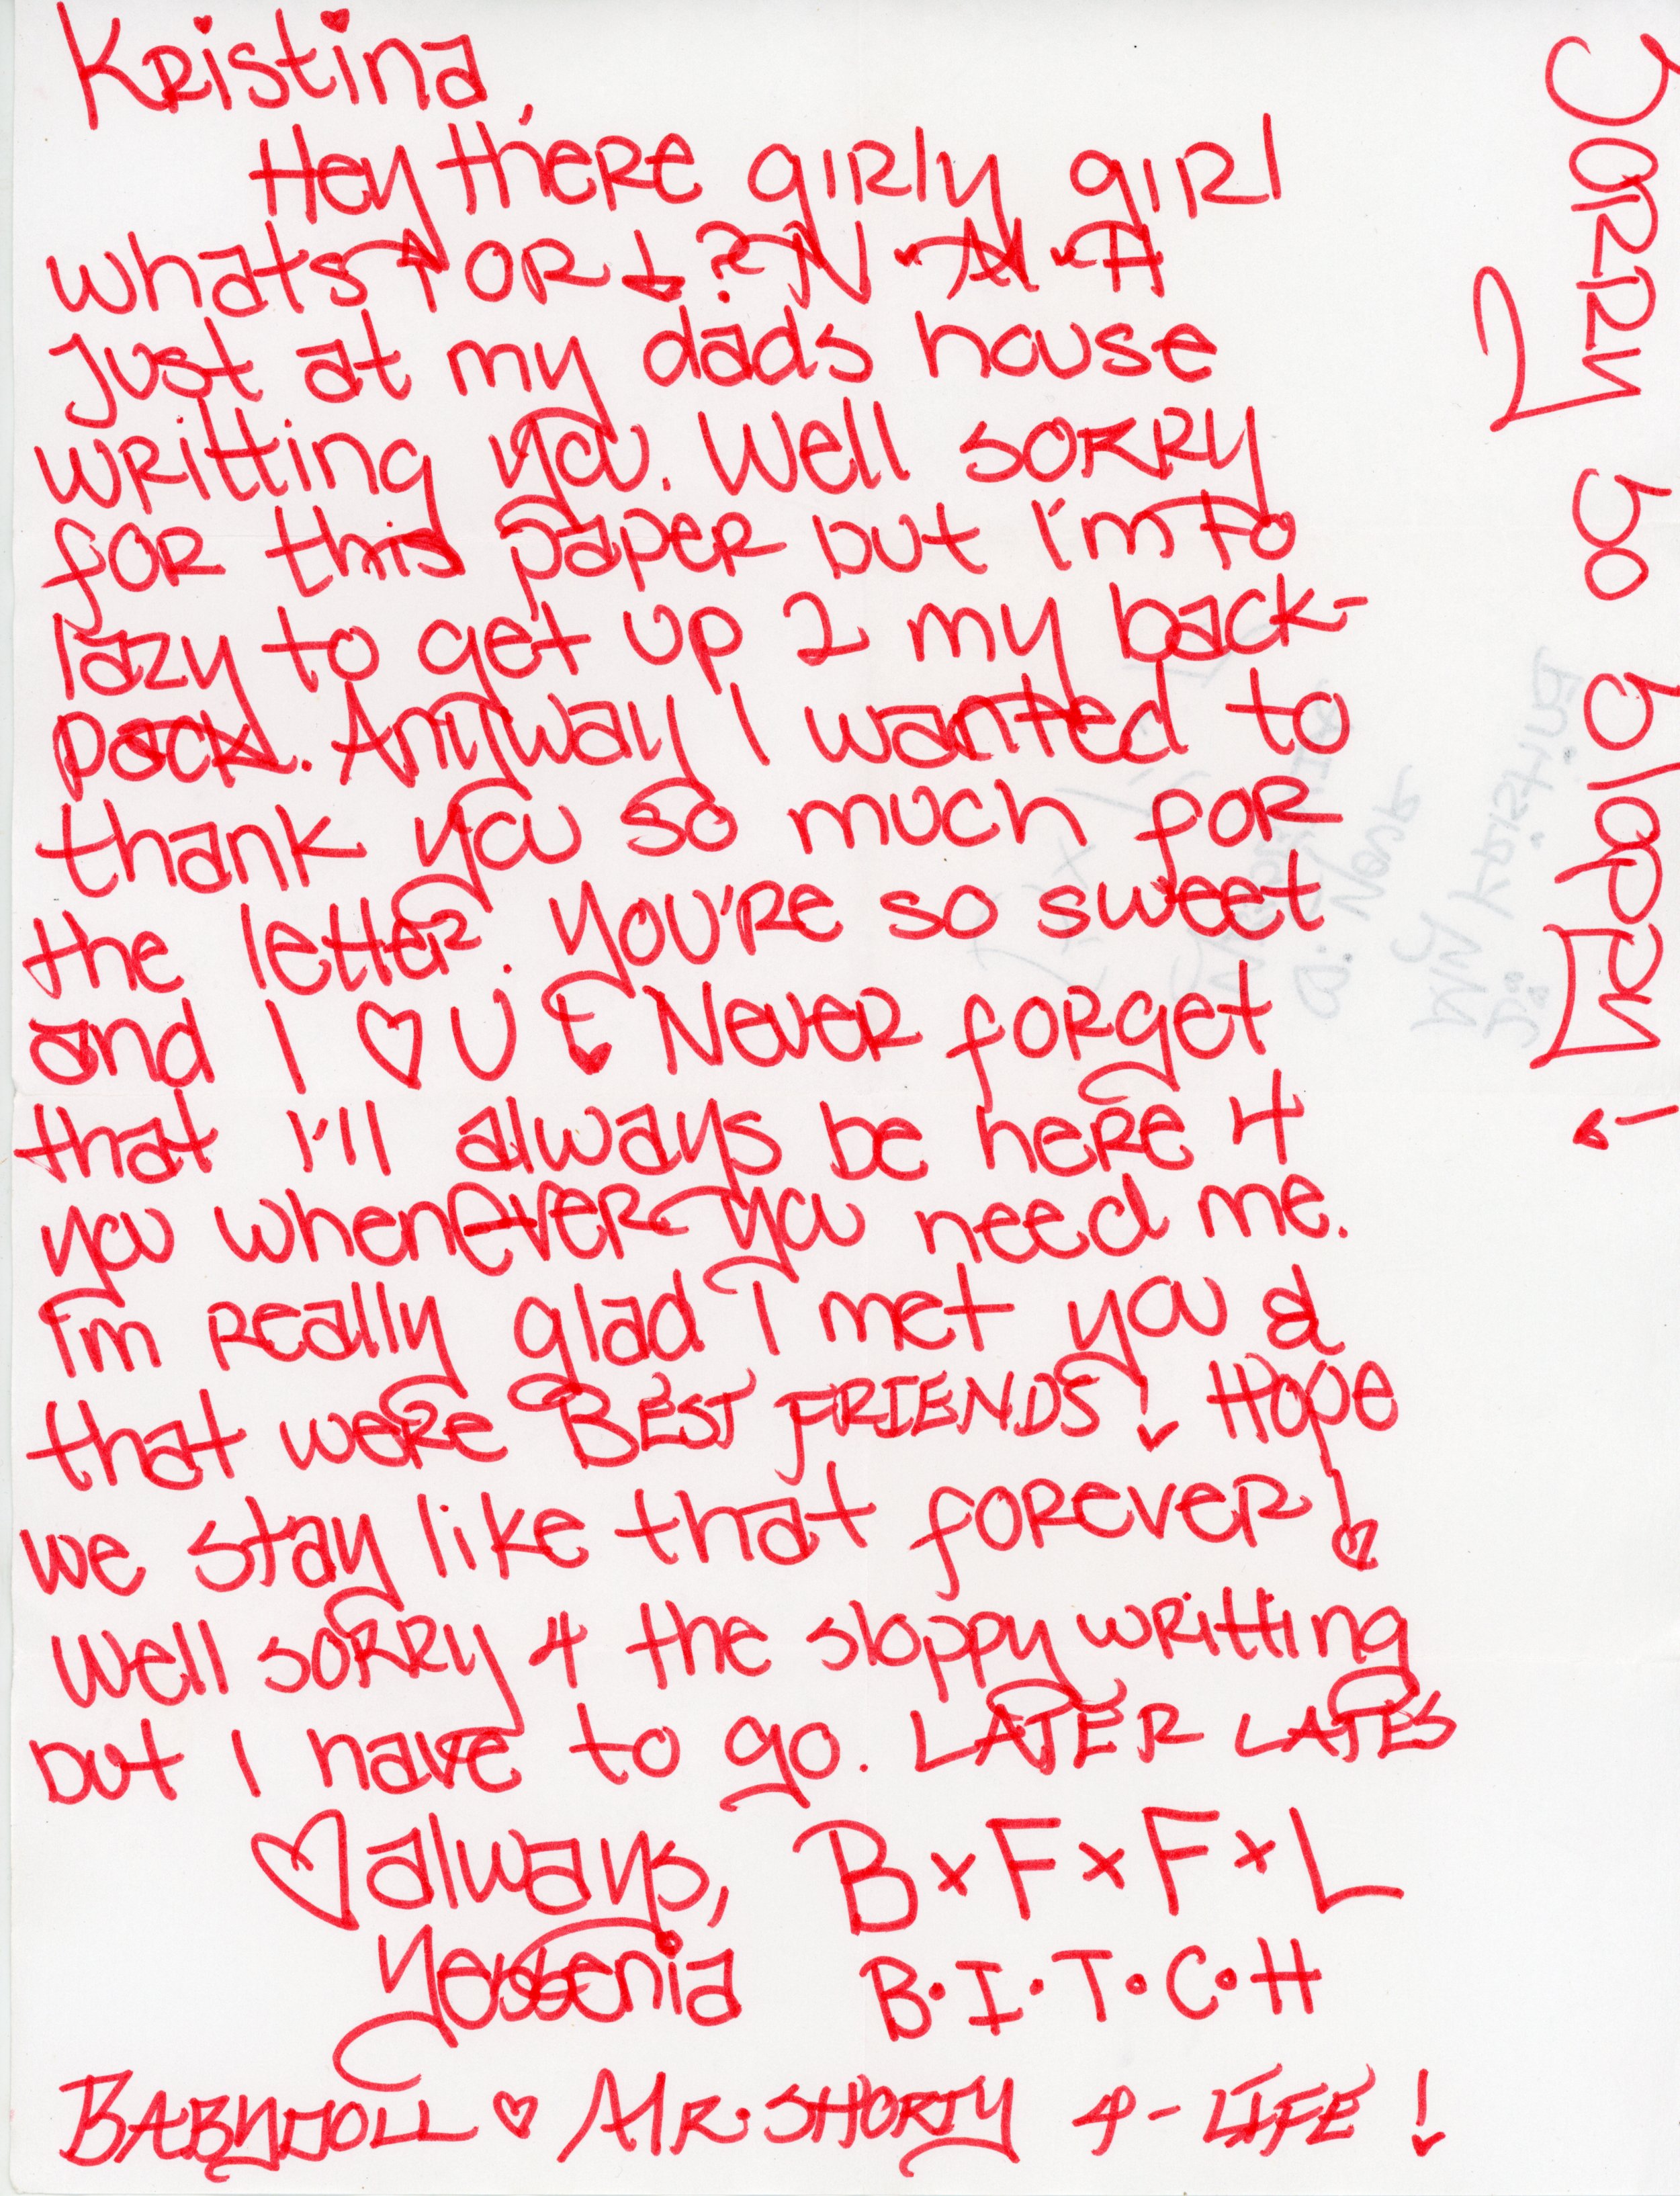 Kristina,
Hey there girly girl
whats ↑ OR ↓? N·M·H
Just at my dads house
writting you. Well sorry
for this paper but I'm to
lazy to get up 2 my back-
pack. Anyway I wanted to
thank you so much for
the letter. You're so sweet
and I ♡ U! Never forget
that I'll always be here 4
you whenever you need me.
I'm really glad I met you &
that were BEST FRIENDS! Hope
we stay like that forever!
Well sorry 4 the sloppy writting
but I have to go. LATER LATES
♡ always, B x F x F x L
Yessenia B·I·T·C·H
BABYDOLL ♡ MR. SHORTY 4-LIFE!
Sorry so sloppy!
Kristina